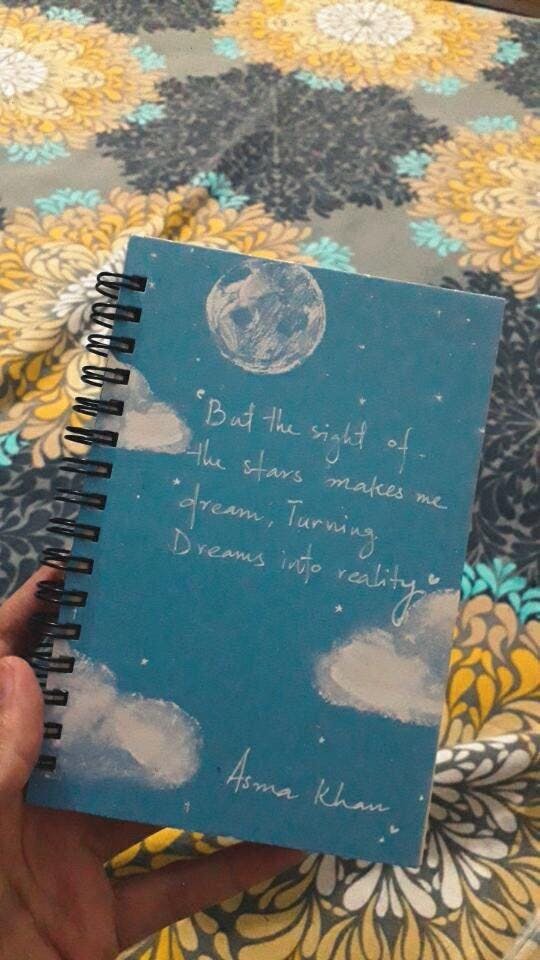 "But the sight of
the stars makes me
dream, Turning
Dreams into reality"
Asma Khan